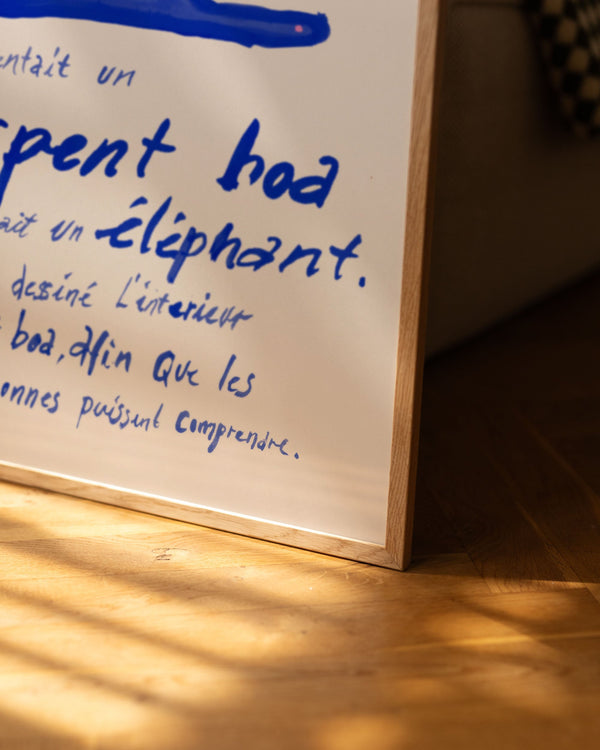 ntait un
pent boa
ait un éléphant.
dessiné L'interieur
boa, afin Que les
onnes puissent comprendre.